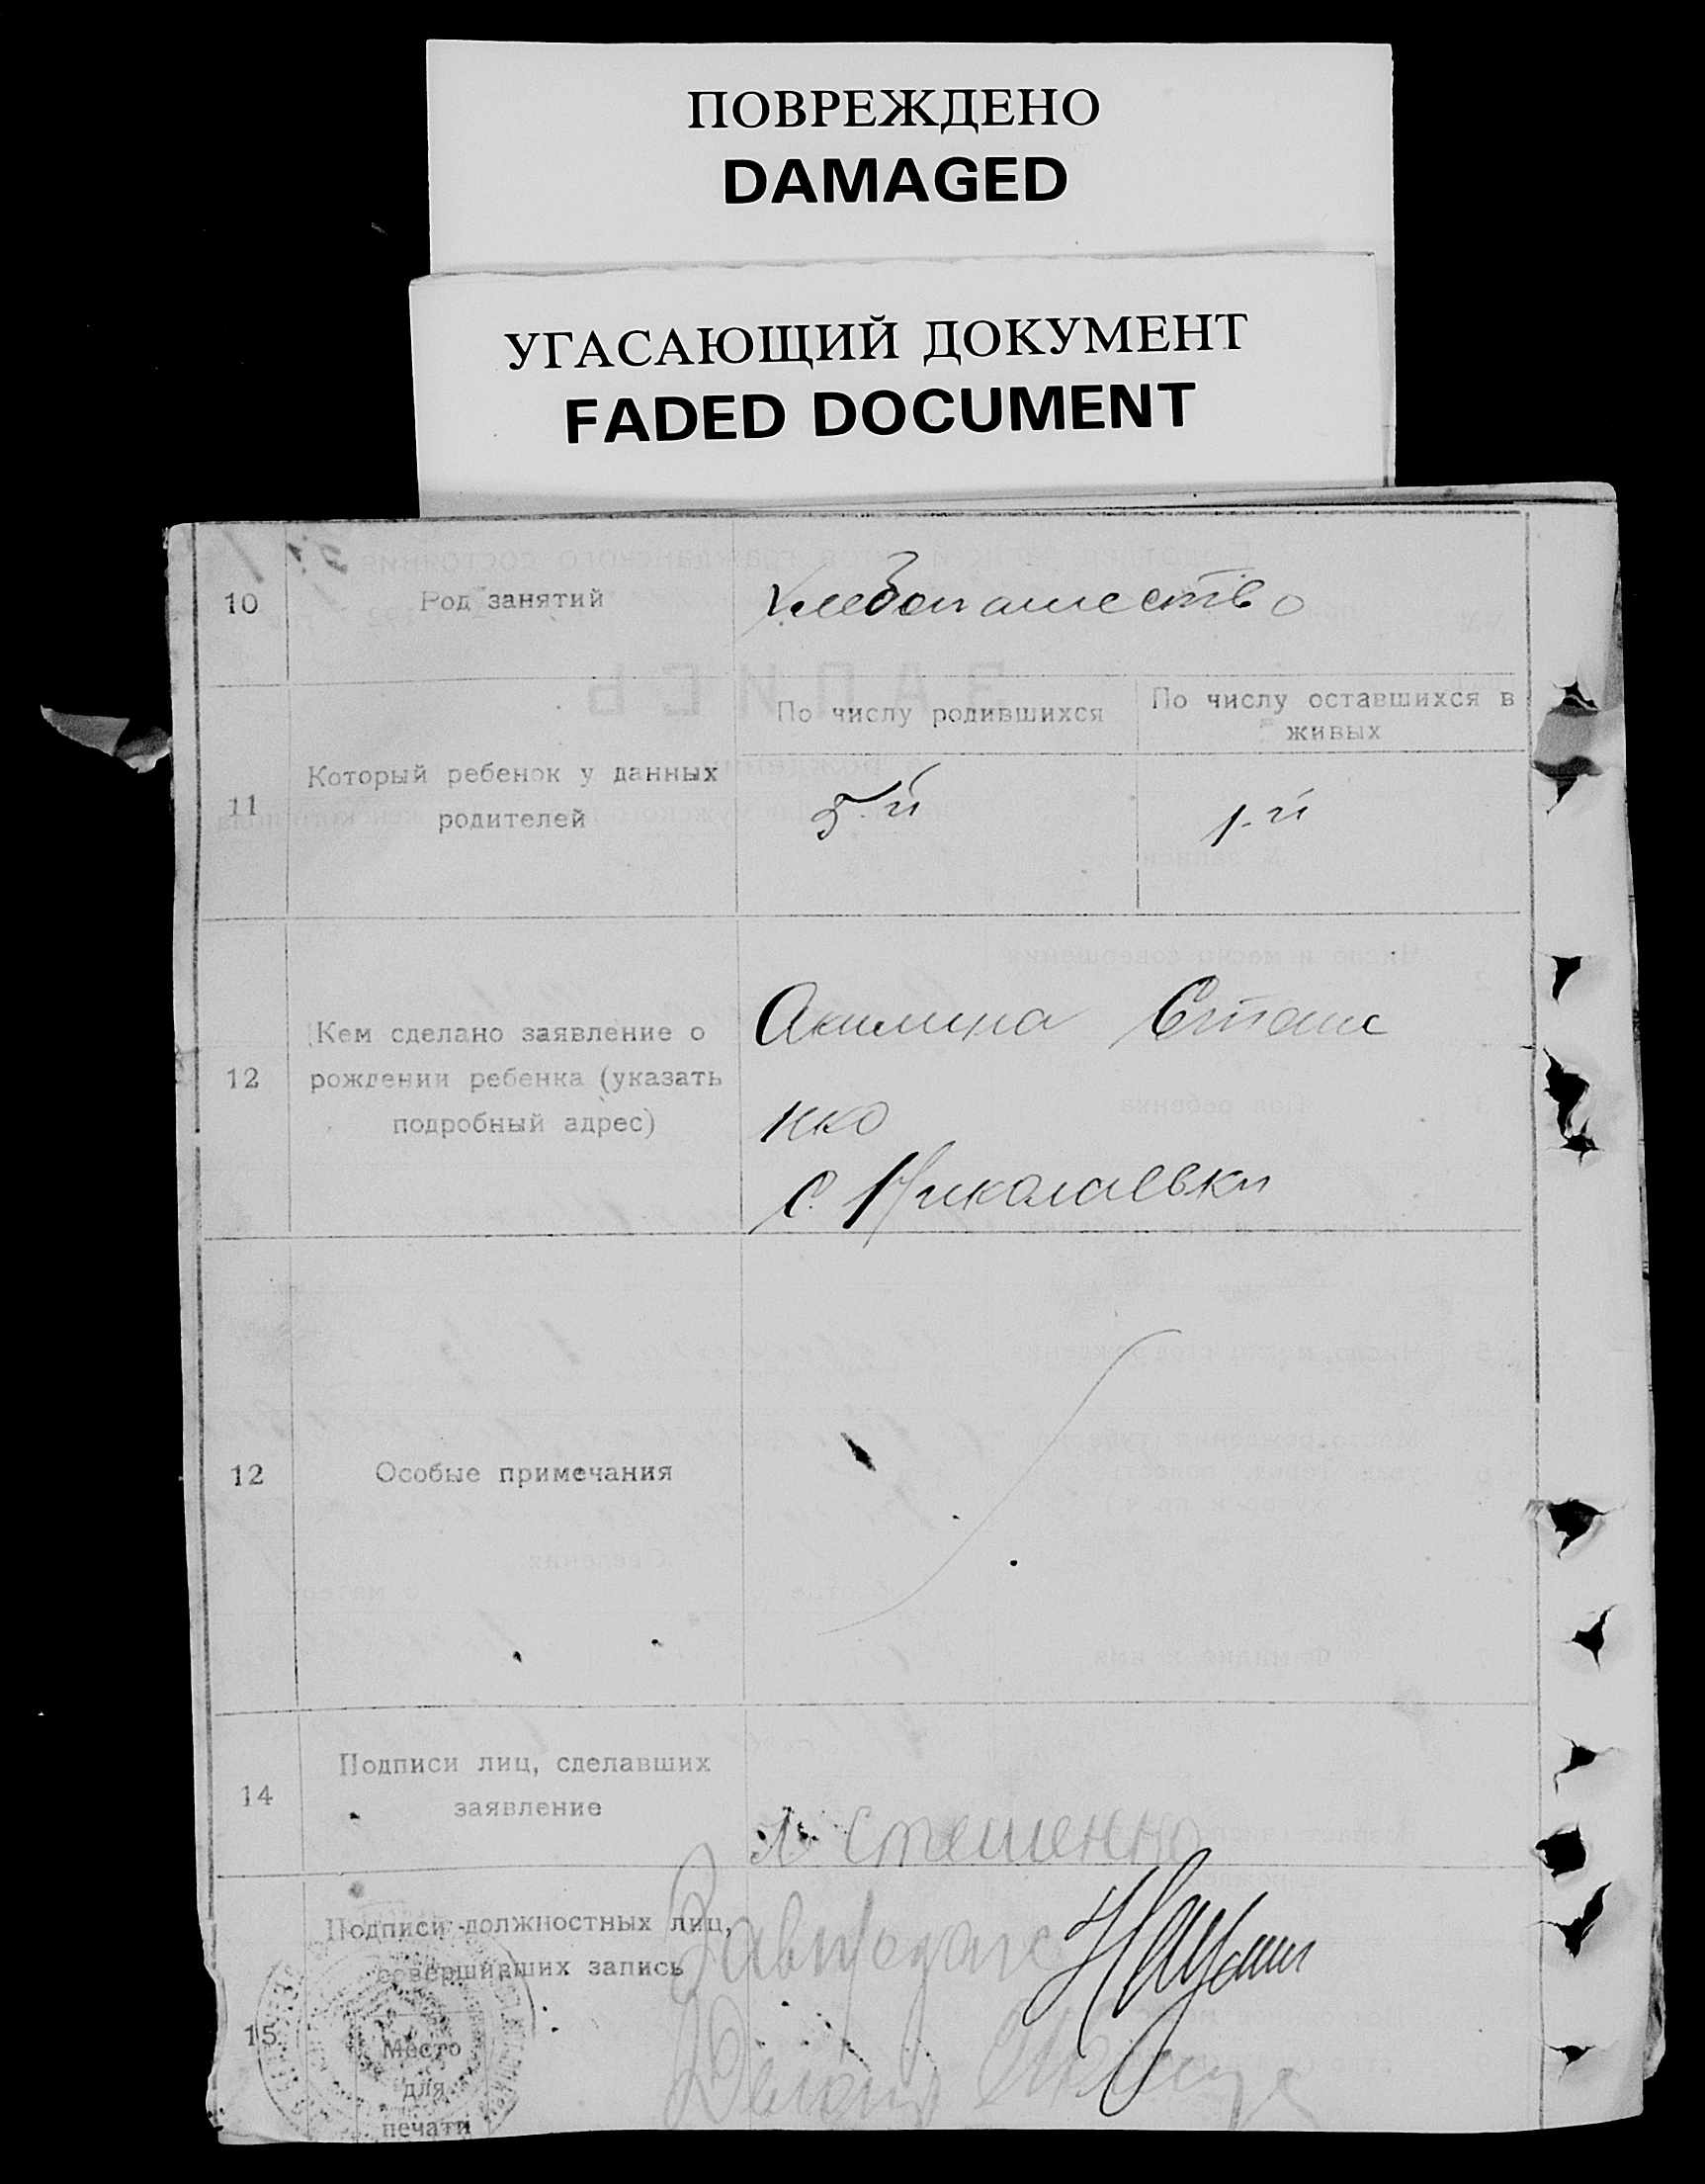 ПОВРЕЖДЕНО
DAMAGED
УГАСАЮЩИЙ ДОКУМЕНТ
FADED DOCUMENT
10 Род занятий Хлебопашество
По числу родившихся По числу оставшихся в живых
11 Который ребенок у данных родителей 5-й 1-й
12 Кем сделано заявление о
рождении ребенка (указать
подробный адрес)
Акилина Сташе
нко
с. Николаевки
12 Особые примечания
14 Подписи лиц, сделавших
заявление
Стешенко
15 Подписи должностных лиц,
совершивших запись
Место
для
печати